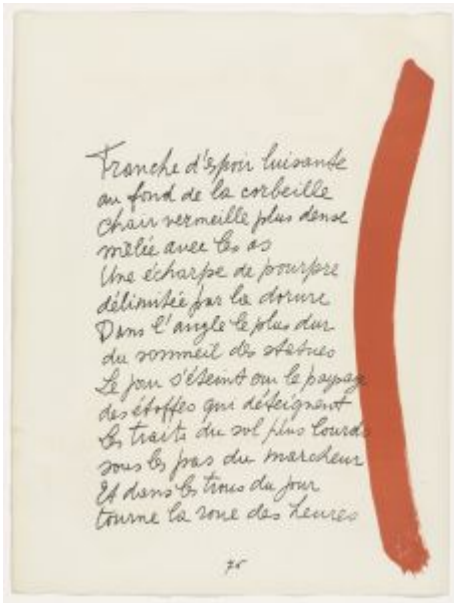 Tranche d'espoir luisante
au fond de la corbeille
chair vermeille plus dense
mêlée avec les os
Une écharpe de pourpre
délimitée par la dorure
Dans l'angle le plus dur
du sommeil des statues
Le jour s'éteint sur le paysage
des étoffes qui déteignent
Les traits du sol plus lourds
sous les pas du marcheur
Et dans les trous du jour
tourne la roue des heures